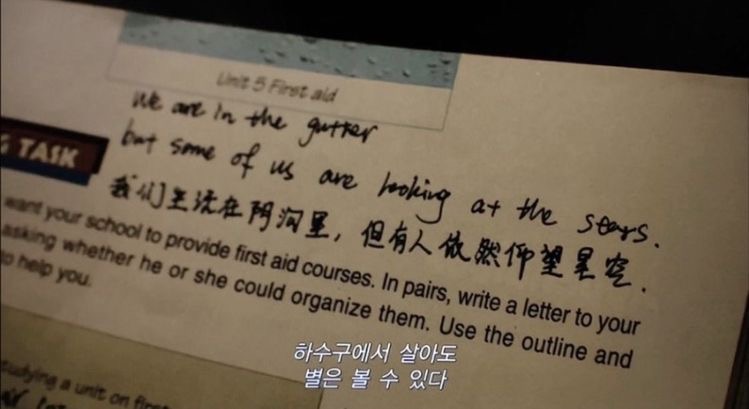 Unit 5 First aid
We are in the gutter
but some of us are looking at the stars.
G TASK
我们生活在阴沟里，但有人依然仰望星空.
want your school to provide first aid courses. In pairs, write a letter to your
asking whether he or she could organize them. Use the outline and
to help you.
하수구에서 살아도
별은 볼 수 있다
studying a unit on first